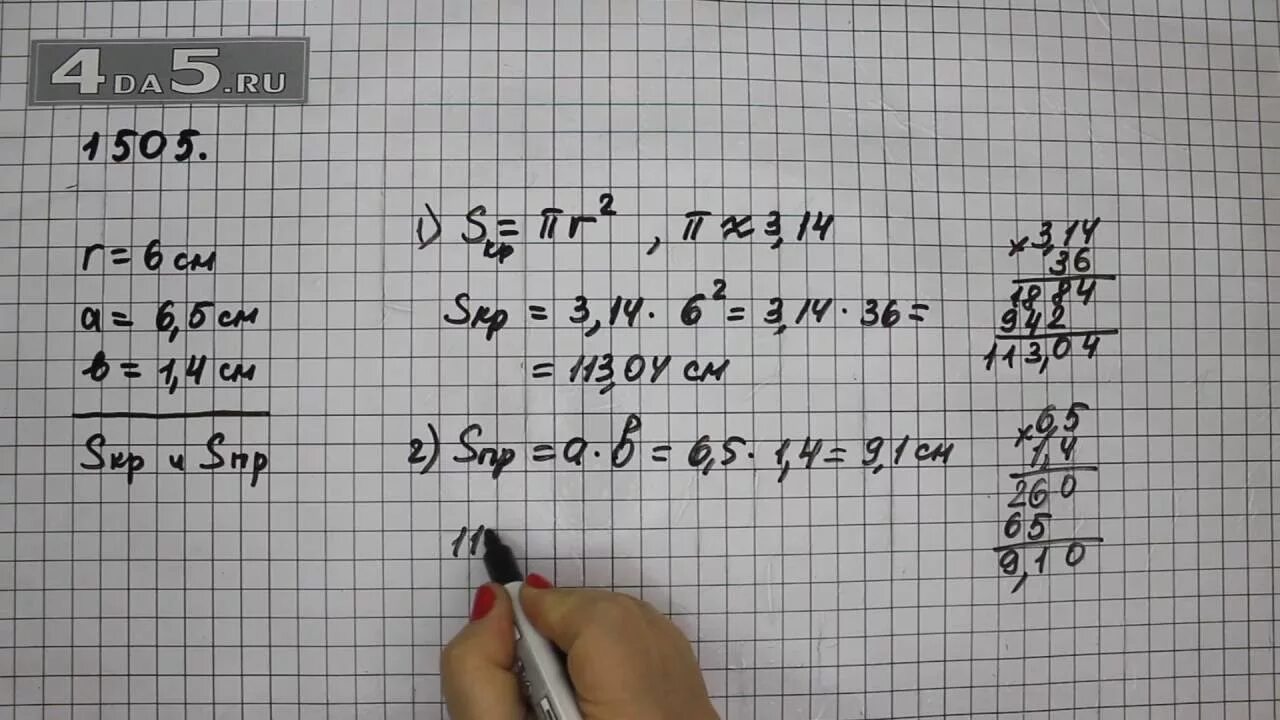 4DA5.RU
1505.
r = 6 см
a = 6,5 см
в = 1,4 см
Sкр и Sпр
1) Sкр = πr² , π ≈ 3,14
Sкр = 3,14 · 6² = 3,14 · 36 =
= 113,04 см
2) Sпр = a · в = 6,5 · 1,4 = 9,1 см
11
× 3,14
36
1884
942
113,04
× 6,5
1,4
260
65
9,10